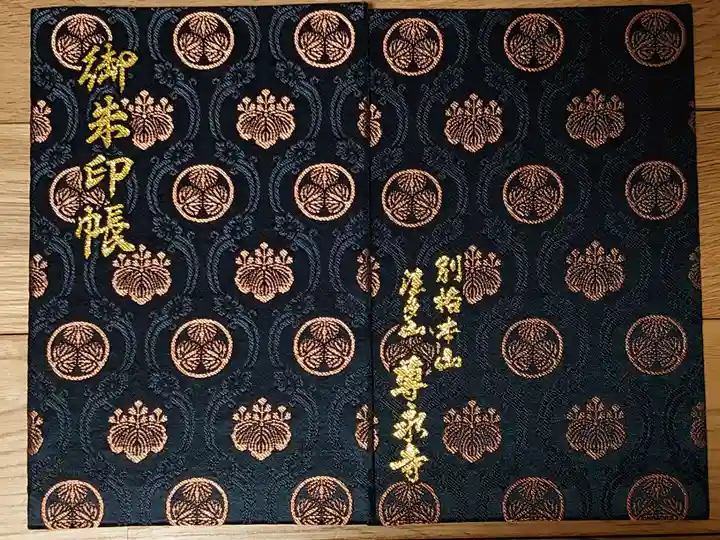 御朱印帳
別格本山
法多山
尊永寺